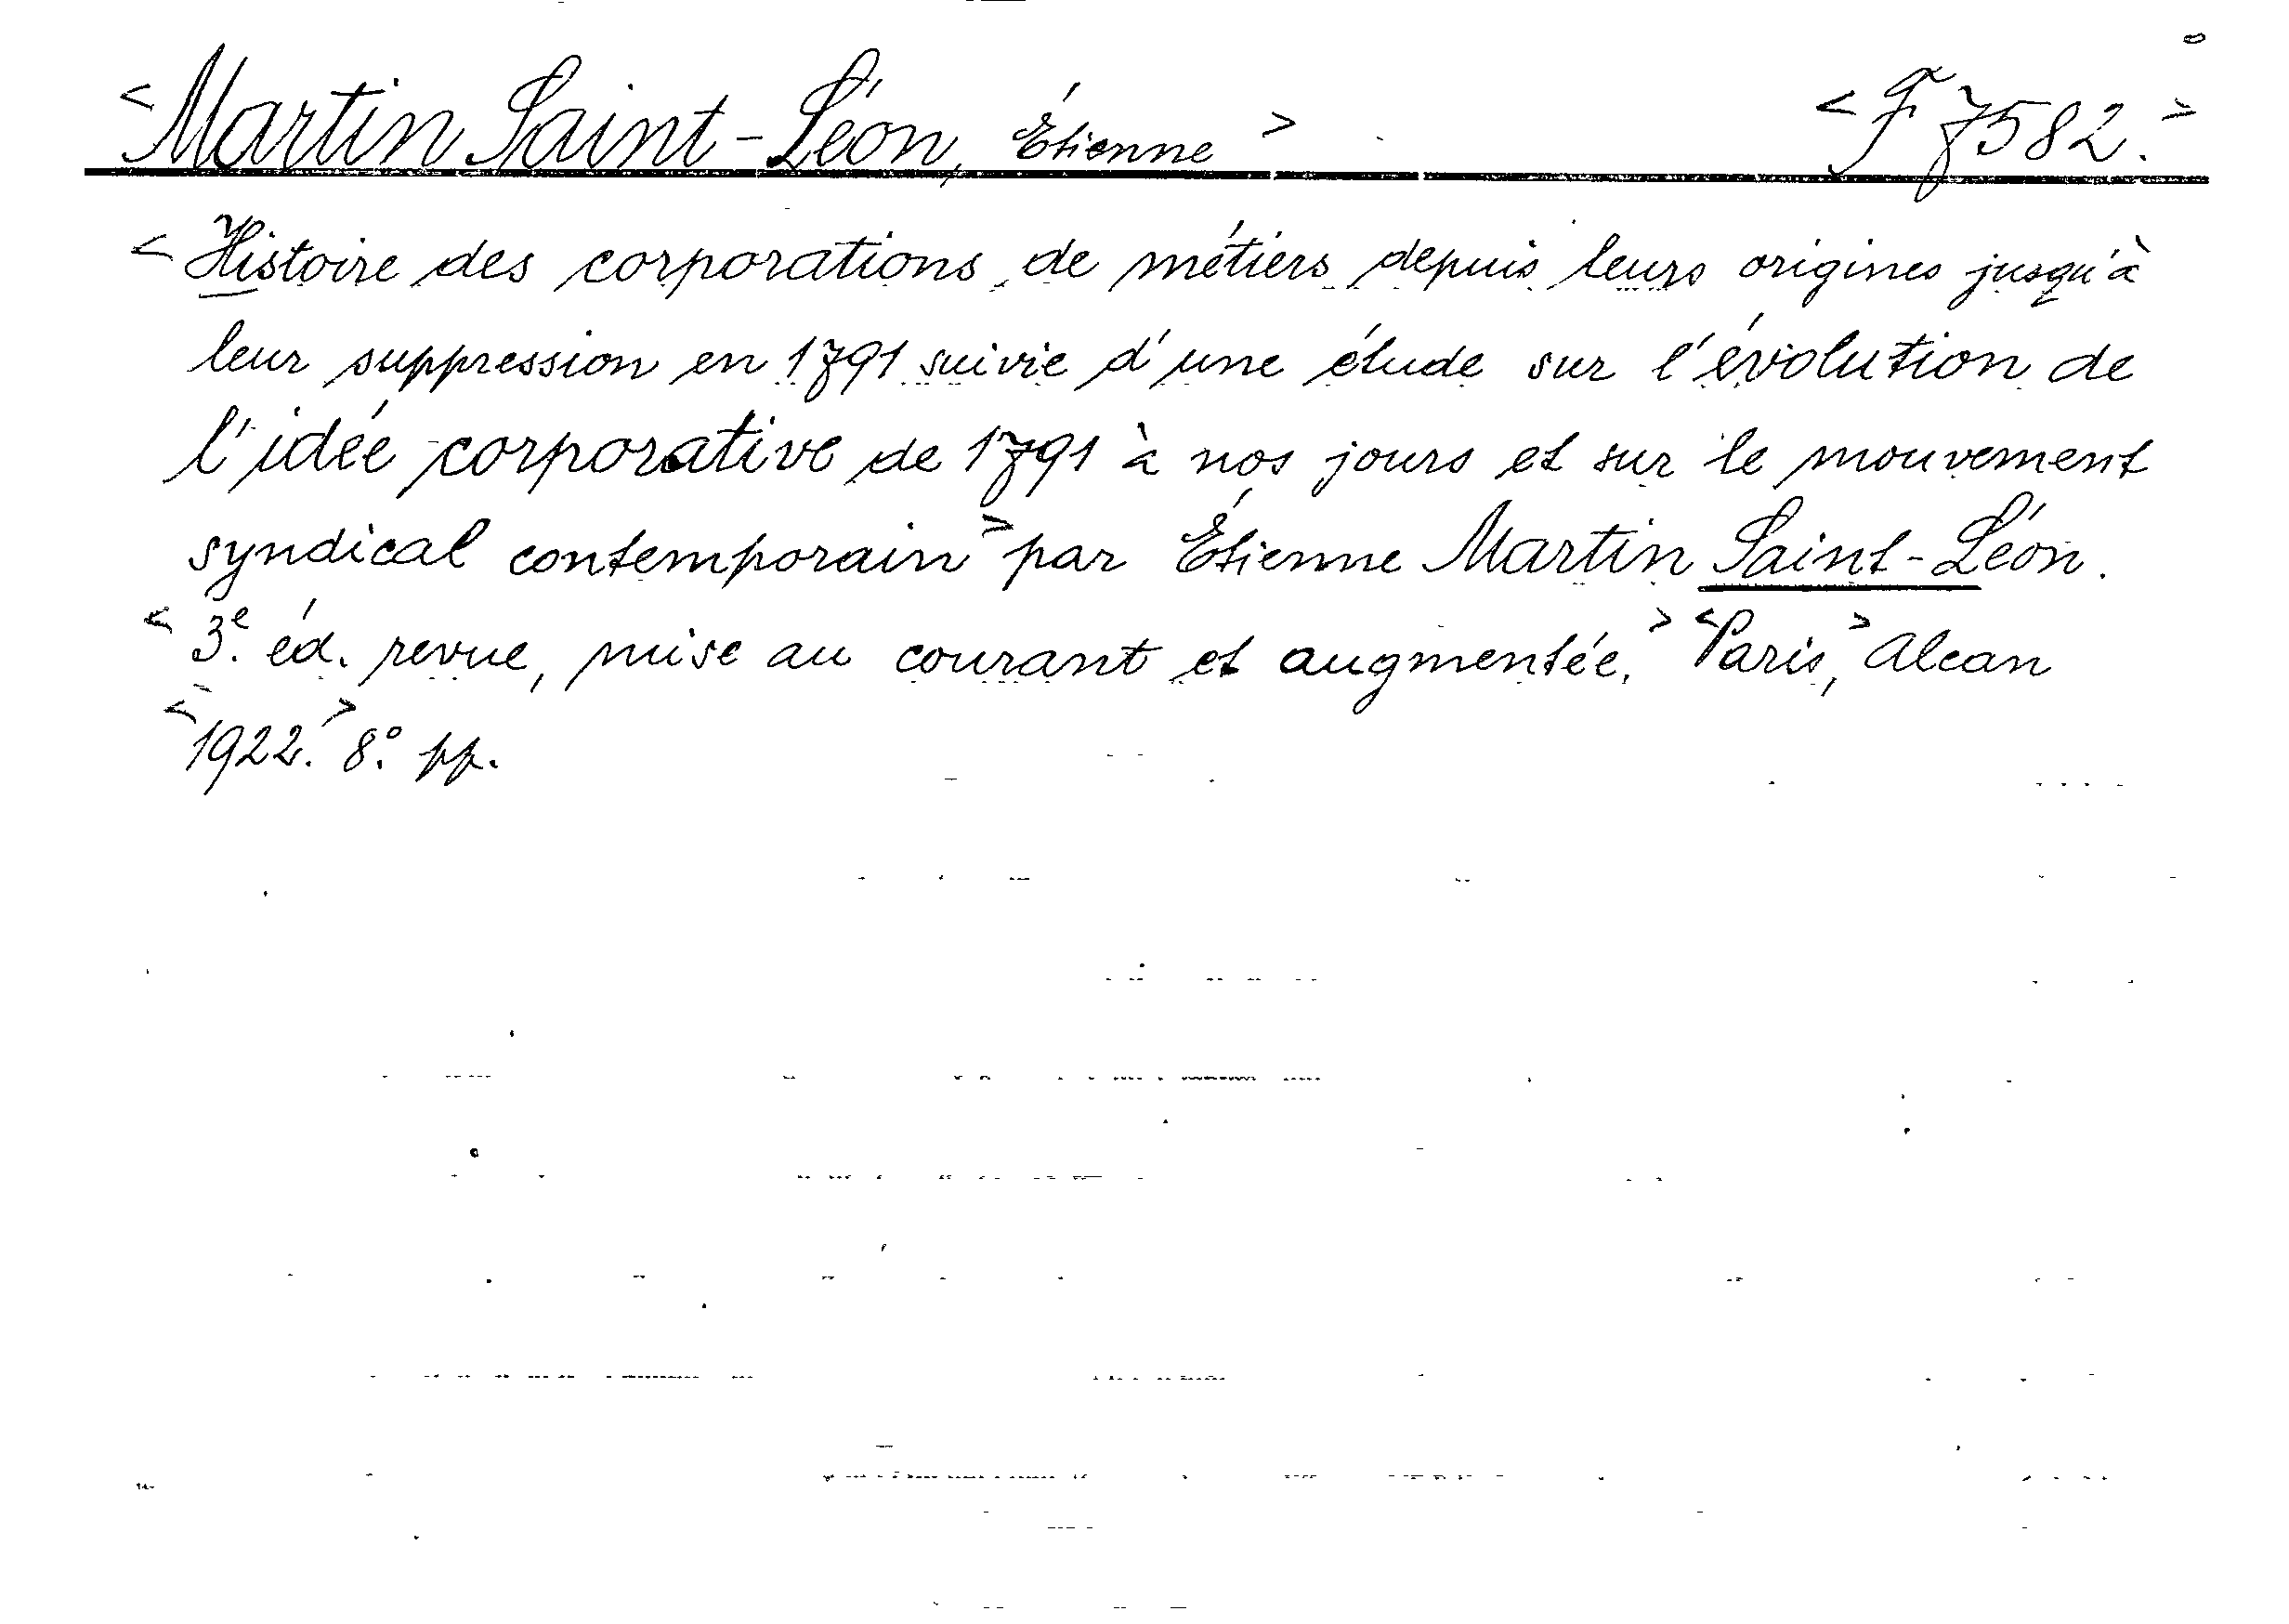 < Martin Saint-Léon, Étienne > < F 7582. >
< Histoire des corporations de métiers depuis leurs origines jusqu'à
leur suppression en 1791 suivie d'une étude sur l'évolution de
l'idée corporative de 1791 à nos jours et sur le mouvement
syndical contemporain > par Étienne Martin Saint-Léon.
< 3e. éd. revue, mise au courant et augmentée. > < Paris, > Alcan
< 1922. > 8°. pp.